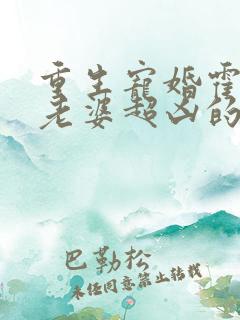 重生寵婚霍
老婆超凶的
巴勒松
未经同意禁止转载